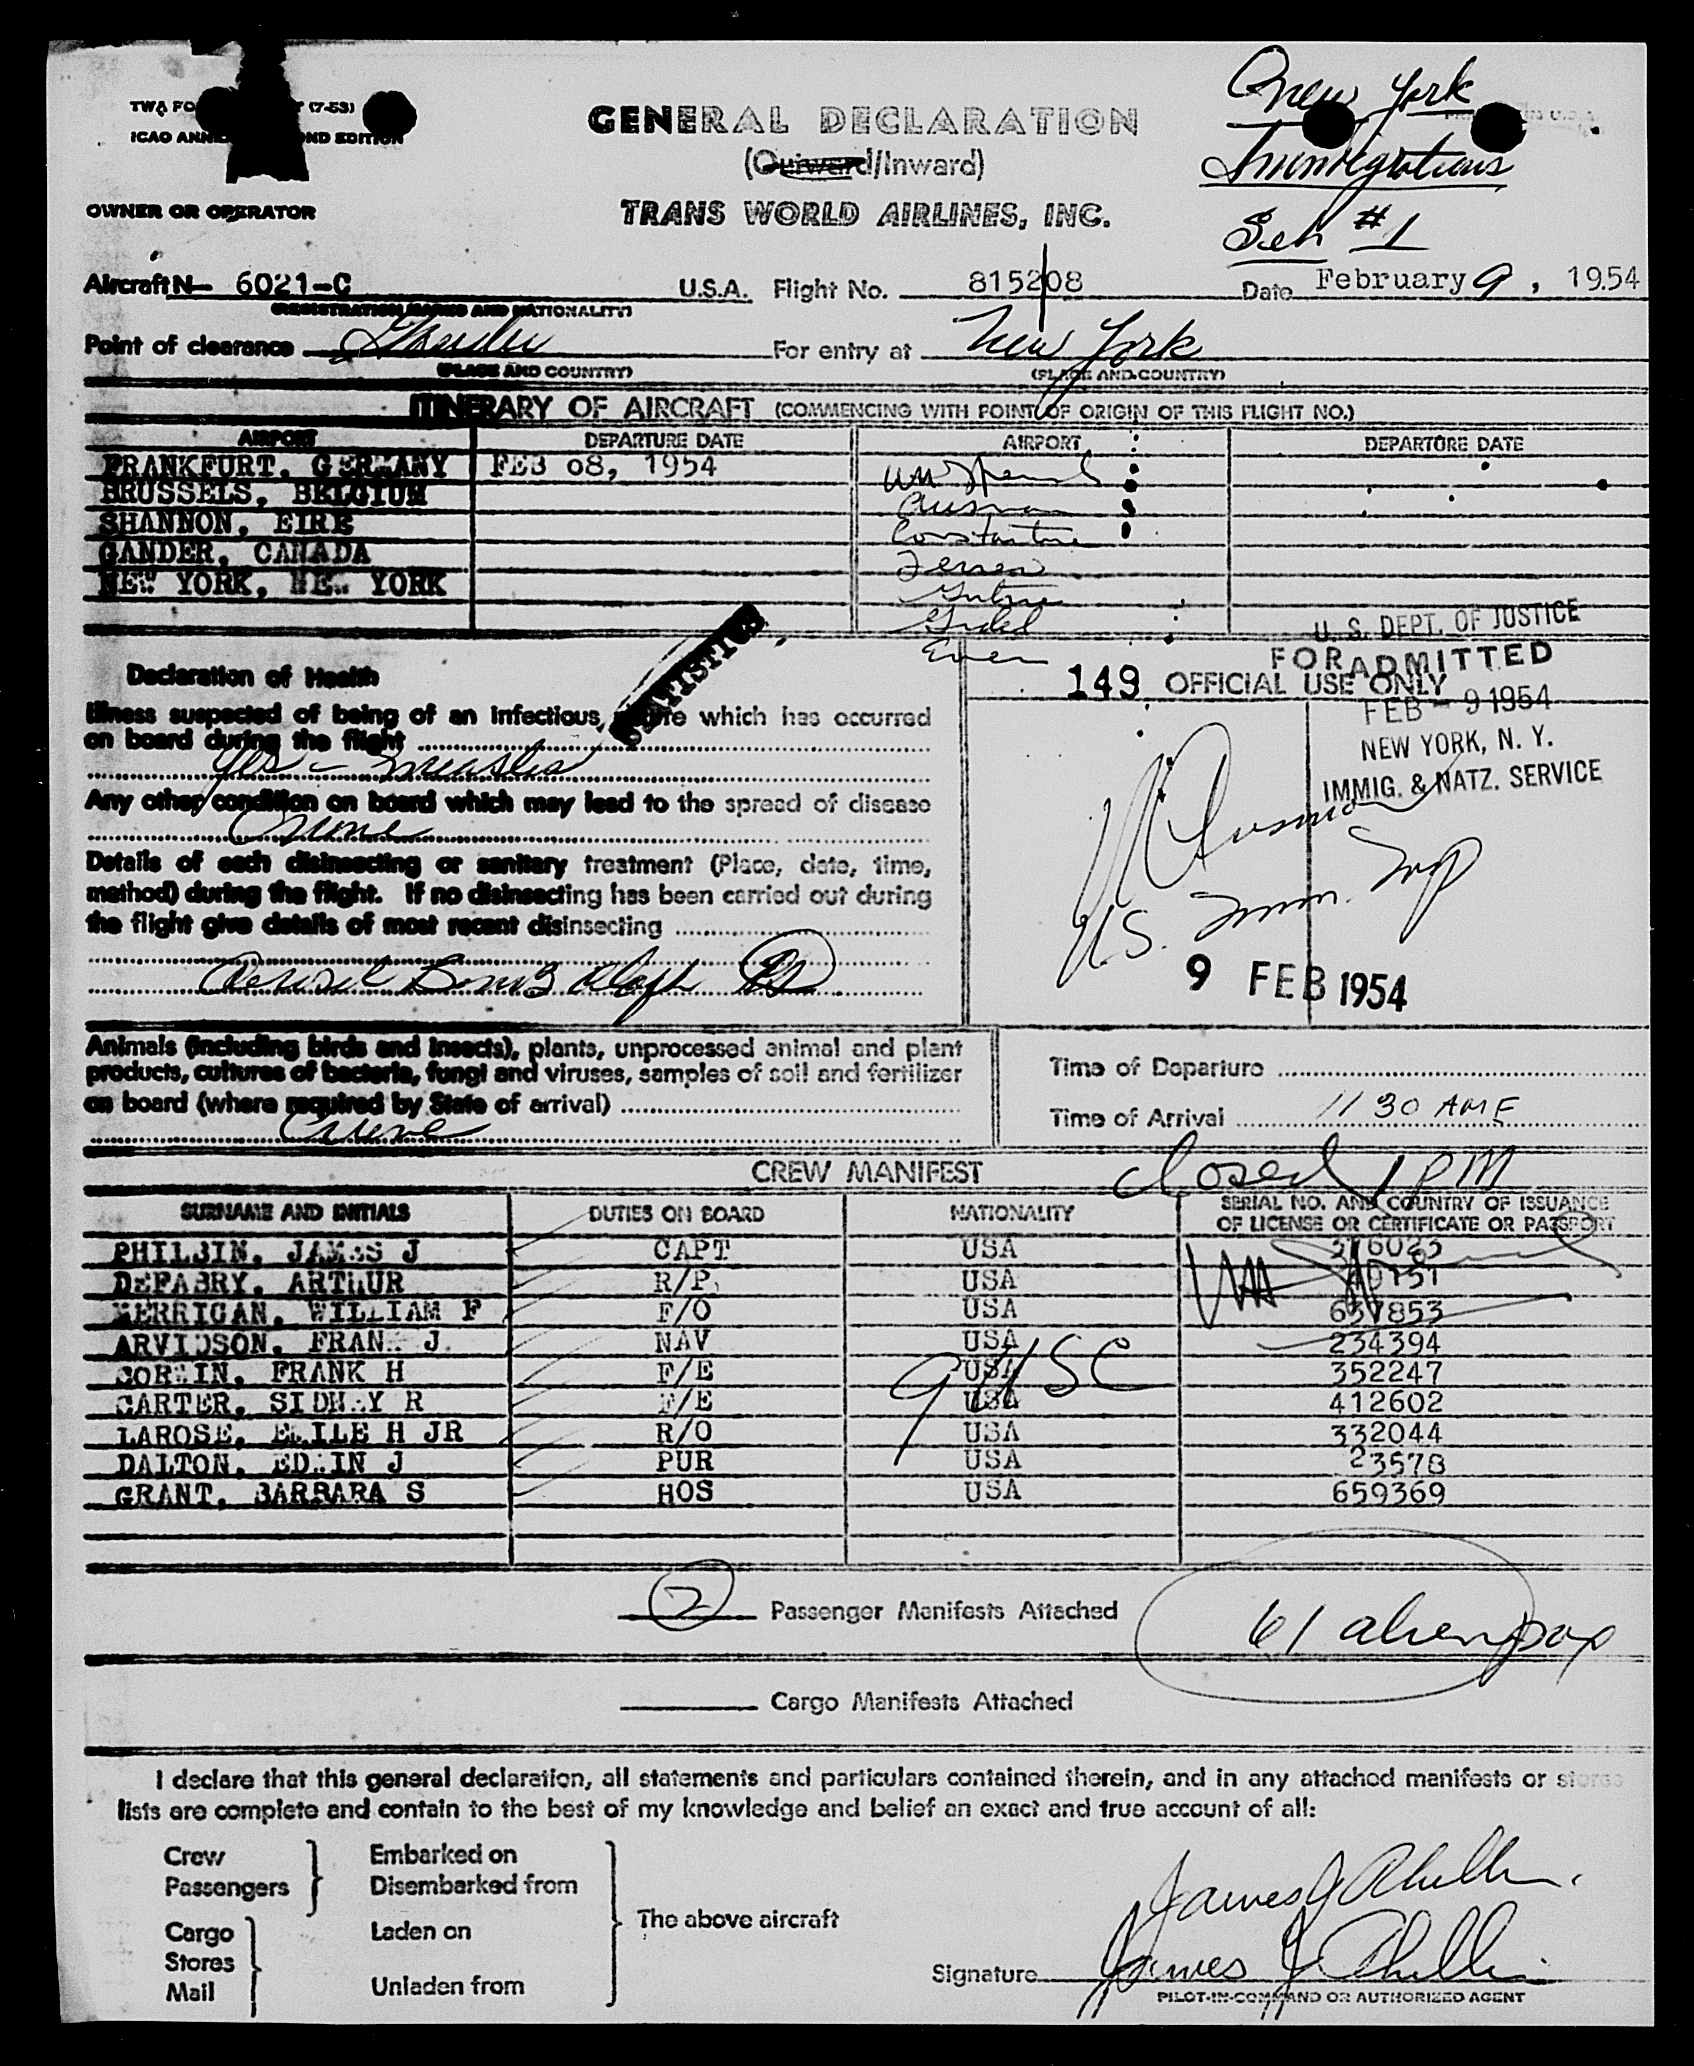 New York
TWA FO (7-53)
GENERAL DECLARATION
ICAO ANNE ND EDITION
(Outward/Inward)
Immigrations
OWNER OR OPERATOR
TRANS WORLD AIRLINES, INC.
#1
Aircraft N- 6021-C U.S.A. Flight No. 815208 Date February 9, 1954
(REGISTRATION MARKS AND NATIONALITY)
Point of clearance Gander For entry at New York
(PLACE AND COUNTRY) (PLACE AND COUNTRY)
ITINERARY OF AIRCRAFT (COMMENCING WITH POINT OF ORIGIN OF THIS FLIGHT NO.)
AIRPORT DEPARTURE DATE AIRPORT DEPARTURE DATE
FRANKFURT, GERMANY FEB 08, 1954
BRUSSELS, BELGIUM
SHANNON, EIRE
GANDER, CANADA
NEW YORK, NEW YORK
U. S. DEPT. OF JUSTICE
STATISTICS
FOR ADMITTED
149 OFFICIAL USE ONLY
FEB - 9 1954
NEW YORK, N. Y.
IMMIG. & NATZ. SERVICE
Declaration of Health
Illness suspected of being of an infectious nature which has occurred
on board during the flight
Yes - Measles
Any other condition on board which may lead to the spread of disease
None
Details of each disinsecting or sanitary treatment (Place, date, time,
method) during the flight. If no disinsecting has been carried out during
the flight give details of most recent disinsecting
U.S. Imm. Insp
9 FEB 1954
Animals (including birds and insects), plants, unprocessed animal and plant
products, cultures of bacteria, fungi and viruses, samples of soil and fertilizer
on board (where required by State of arrival)
None
Time of Departure
Time of Arrival 11 30 AME
closed 1 PM
CREW MANIFEST
SURNAME AND INITIALS DUTIES ON BOARD NATIONALITY SERIAL NO. AND COUNTRY OF ISSUANCE
OF LICENSE OR CERTIFICATE OR PASSPORT
PHILBIN, JAMES J CAPT USA
DEFABRY, ARTHUR R/P USA
MERRIGAN, WILLIAM F F/O USA 637853
ARVIDSON, FRANK J. NAV USA 234394
CORBIN, FRANK H F/E USA 352247
CARTER, SIDNEY R F/E USA 412602
LAROSE, EMILE H JR R/O USA 332044
DALTON, EDWIN J PUR USA 23578
GRANT, BARBARA S HOS USA 659369
9 USC
2 Passenger Manifests Attached
61 alien pax
Cargo Manifests Attached
I declare that this general declaration, all statements and particulars contained therein, and in any attached manifests or stores
lists are complete and contain to the best of my knowledge and belief an exact and true account of all:
Crew Embarked on
Passengers Disembarked from
The above aircraft
Cargo Laden on
Stores
Mail Unladen from
James J Philbin
Signature James J Philbin
PILOT-IN-COMMAND OR AUTHORIZED AGENT